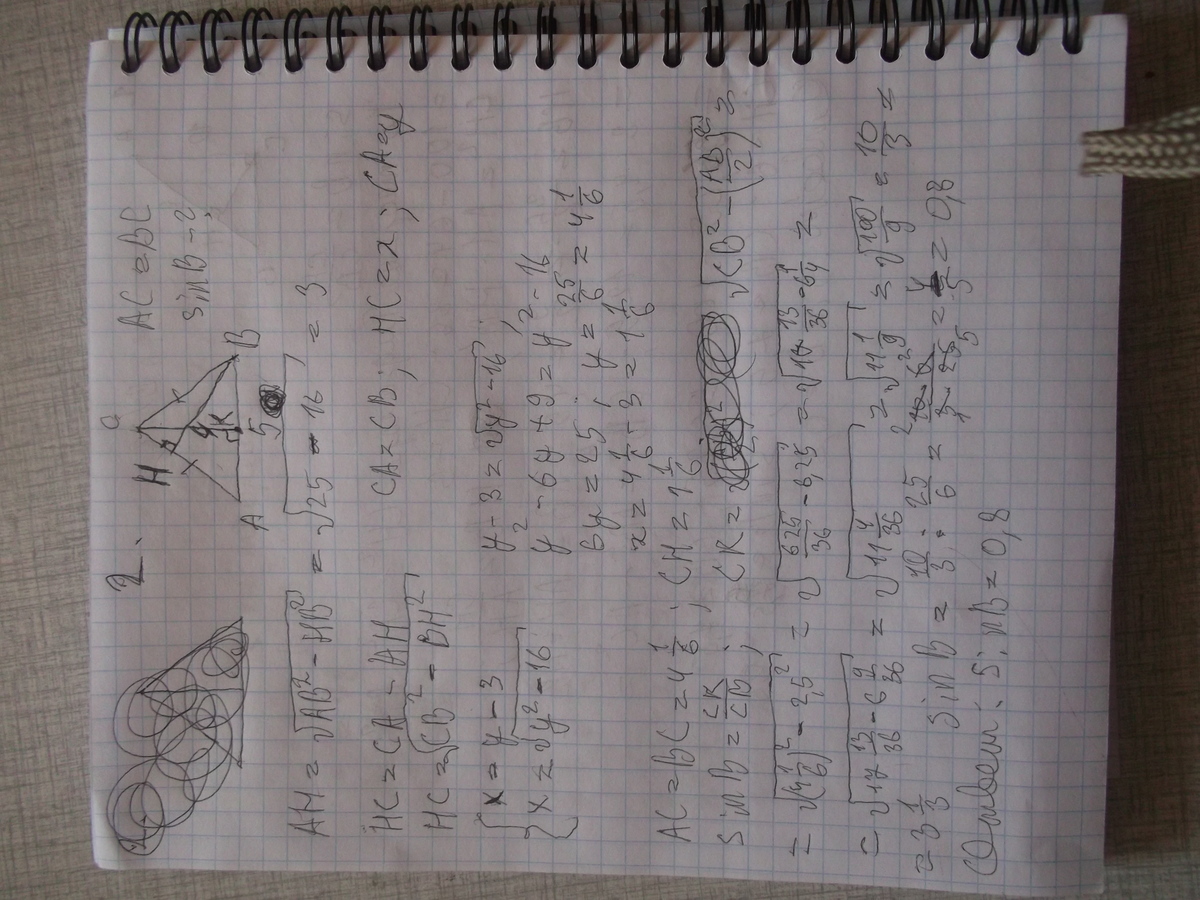 2.
AC = BC
sin B - ?
C
H
4
K
A
5
B
AH = √AB² - HB² = √25 - 16 = 3
HC = CA - AH
CA = CB; HC = x; CA = y
HC = √CB² - BH²
{ x = y - 3
x = √y² - 16
y - 3 = √y² - 16;
y² - 6y + 9 = y² - 16
6y = 25; y = 25/6 = 4 1/6
x = 4 1/6 - 3 = 1 1/6
AC = BC = 4 1/6; CH = 1 1/6
sin B = CK/CB; CK = √CB² - (AB/2)² =
= √(4 1/6)² - 2,5² = √625/36 - 6,25 = √17 13/36 - 6 1/4 =
= √17 13/36 - 6 9/36 = √11 4/36 = √11 1/9 = √100/9 = 10/3 =
= 3 1/3 sin B = 10/3 : 25/6 = 10 · 6/3 · 25 = 4/5 = 0,8
Ответ: sin B = 0,8